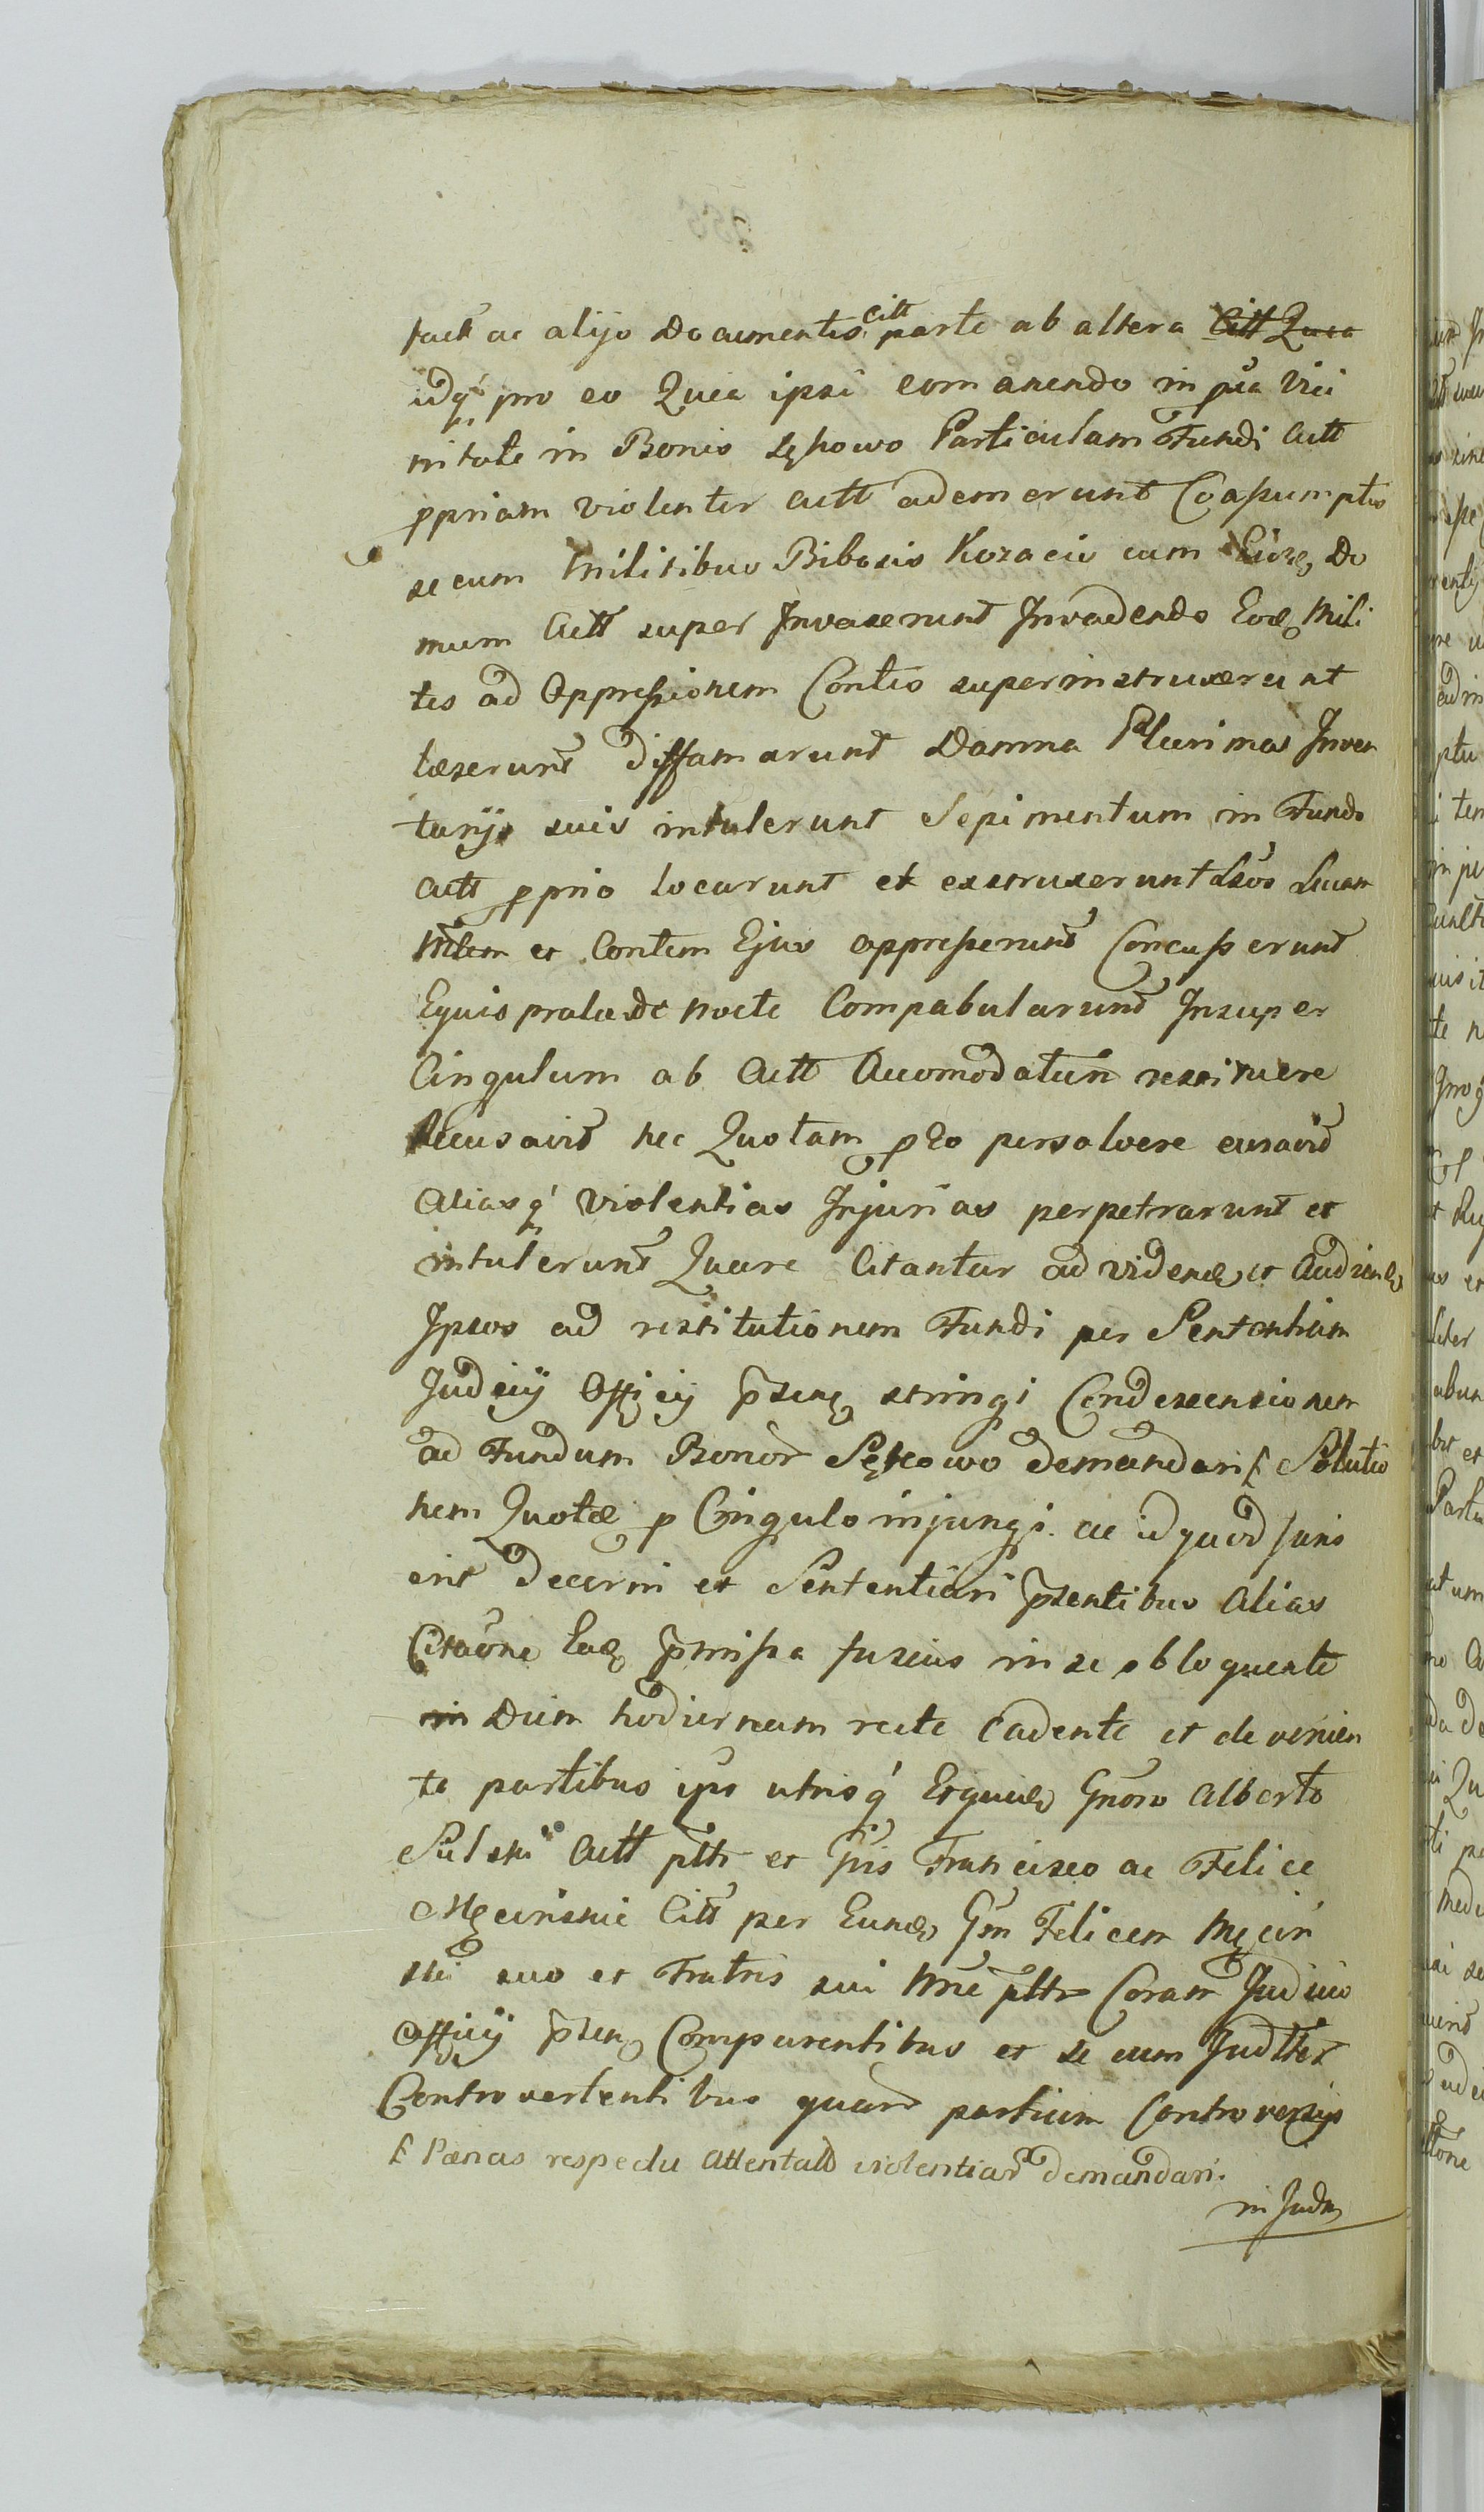 ac alijs Documentis Citt parte ab altera Citt Quia
idq' pro eo Quia ipsi comanendo in pũa Vici
nitate in Bonis Sękowo Particulam Fundi Actt
ppriam violenter Actt ademerunt Coaßumptis
secum Militibus Bibosis Kozacis cum Do
mum Actt super Invaserunt Invadendo Eosd Mili
tes ad Oppreßionem Contis superinstruxerunt
læserunt diffamarunt Damna Plurima Inven
tarijs suis intulerunt Sepimentum in Fundo
Actt pprio locarunt et exstruxerunt Lucam
et Contem Ejus oppreßerunt Concußerunt
Equis prata de Nocte Compabularunt Insuper
Cingulum ab Actt Accomodatum restituere
Recusavit nec Quotam p Eo persolvere curavit
Aliasq' violentias Injurias perpetrarunt et
intulerunt Quare Citantur ad videnđ et Audienđ
Ipsos ad restitutionem Fundi per Sententiam
Judicij Officij p̃sent stringi Condescensionem
ad Fundum Bonor Sękowo demandari Solutio
nem Quotæ p Cingulo injungi ac id quod Juris
erit Decerni et Sententiari p̃sentibus Alias
Citaõne Ead p̃mißa fusius in se obloquente
in Diem hodiernam recte Cadente et devenien
te partibus ips utrisq' Gñoso Alberto
Sulski Actt pltr et Gñis Francisco ac Felice
Męcinskie Citt per Eund Gm Felicem Męcin
ski suo et Fratris sui Nñe pltr Coram Judicio
Officij p̃sent Comparentibus et se cum Judtter
Controvertentibus quar partium Controversijs
Pænas respectu Attentat violentiar demandari.
in Judm